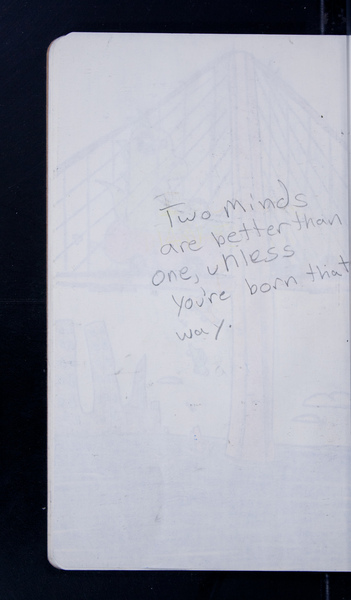 Two minds
are better than
one, unless
you're born that
way.